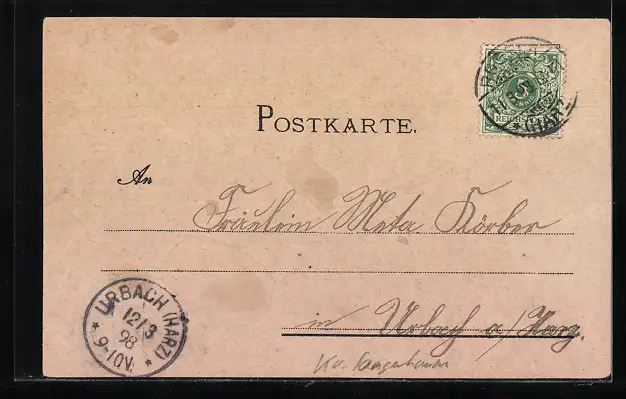 POSTKARTE.
5
REICHSPOST
(HARZ)
An
Fräulein Meta Körber
in Urbach a/Harz.
URBACH (HARZ)
12/3
98
* 9-10V. *